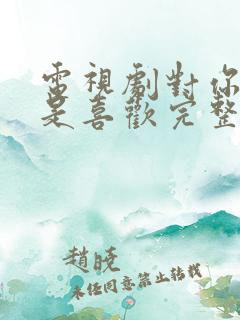 電視劇對你
是喜歡完整
趙曉
未经同意禁止转载